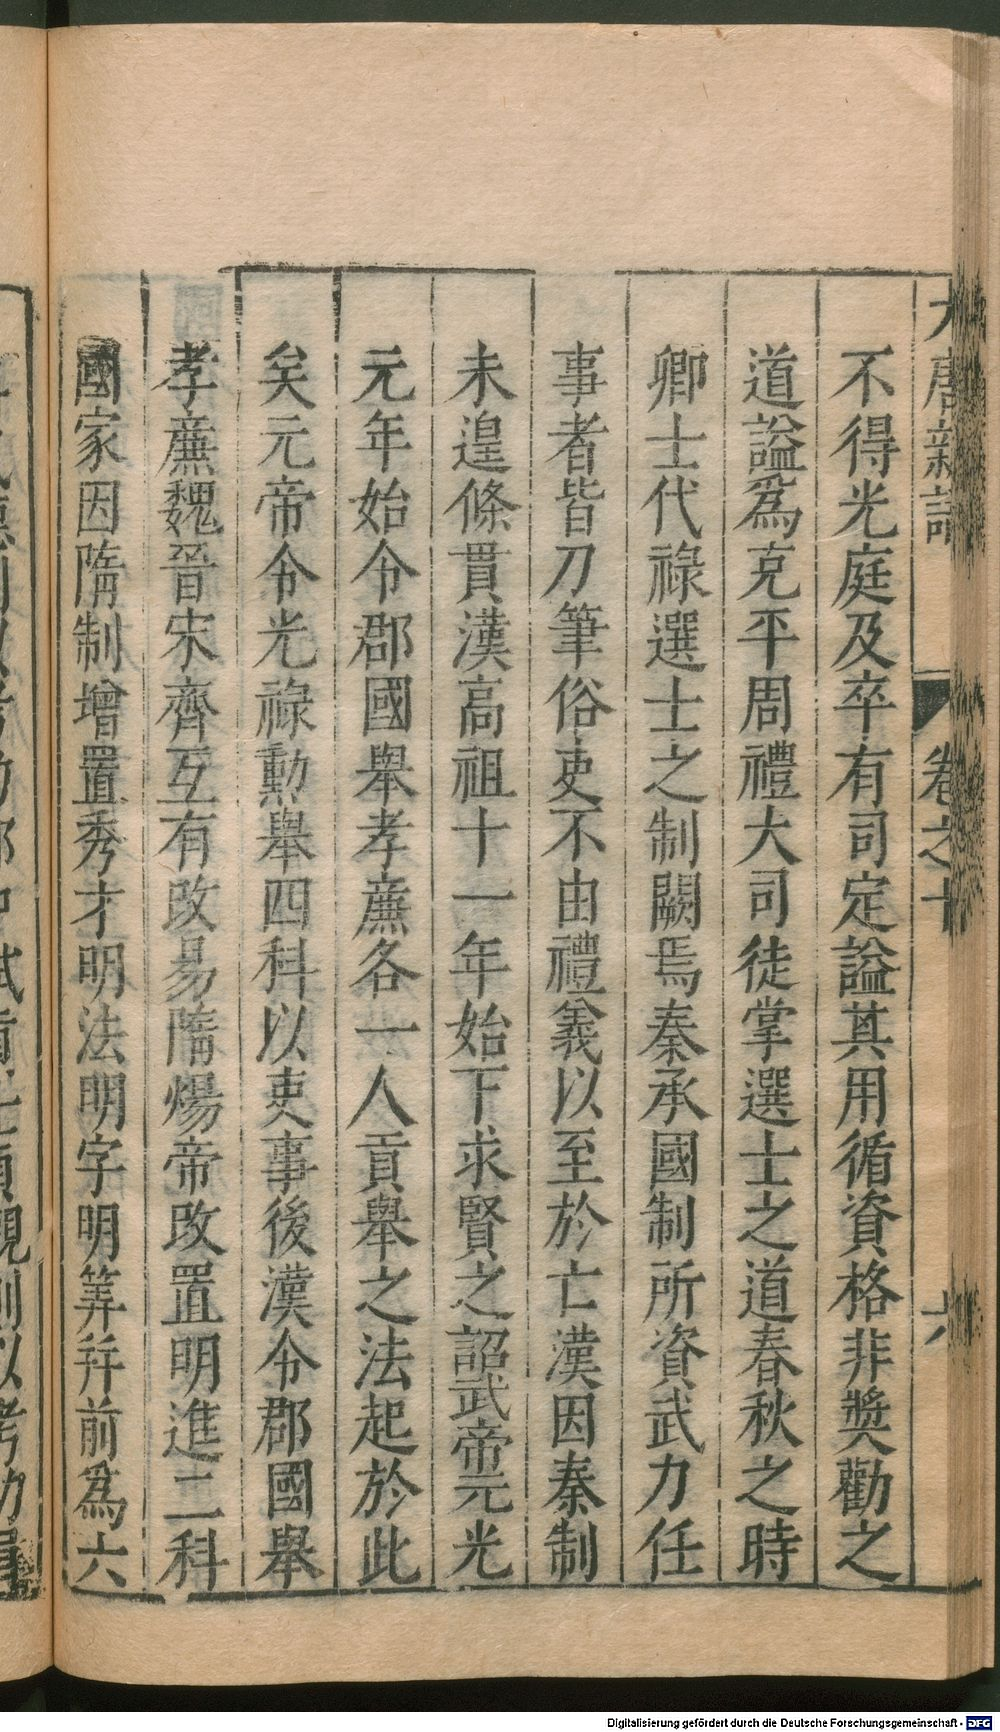 大唐新語 卷之十 六
不得光庭及卒有司定謚其用循資格非獎勸之
道謚爲克平周禮大司徒掌選士之道春秋之時
卿士代祿選士之制闕焉秦承國制所資武力任
事者皆刀筆俗吏不由禮義以至於亡漢因秦制
未遑條貫漢高祖十一年始下求賢之詔武帝元光
元年始令郡國舉孝廉各一人貢舉之法起於此
矣元帝令光祿勳舉四科以吏事後漢令郡國舉
孝廉魏晉宋齊互有改易隋煬帝改置明進二科
國家因隋制增置秀才明法明字明筭幷前爲六
Digitalisierung gefördert durch die Deutsche Forschungsgemeinschaft - DFG